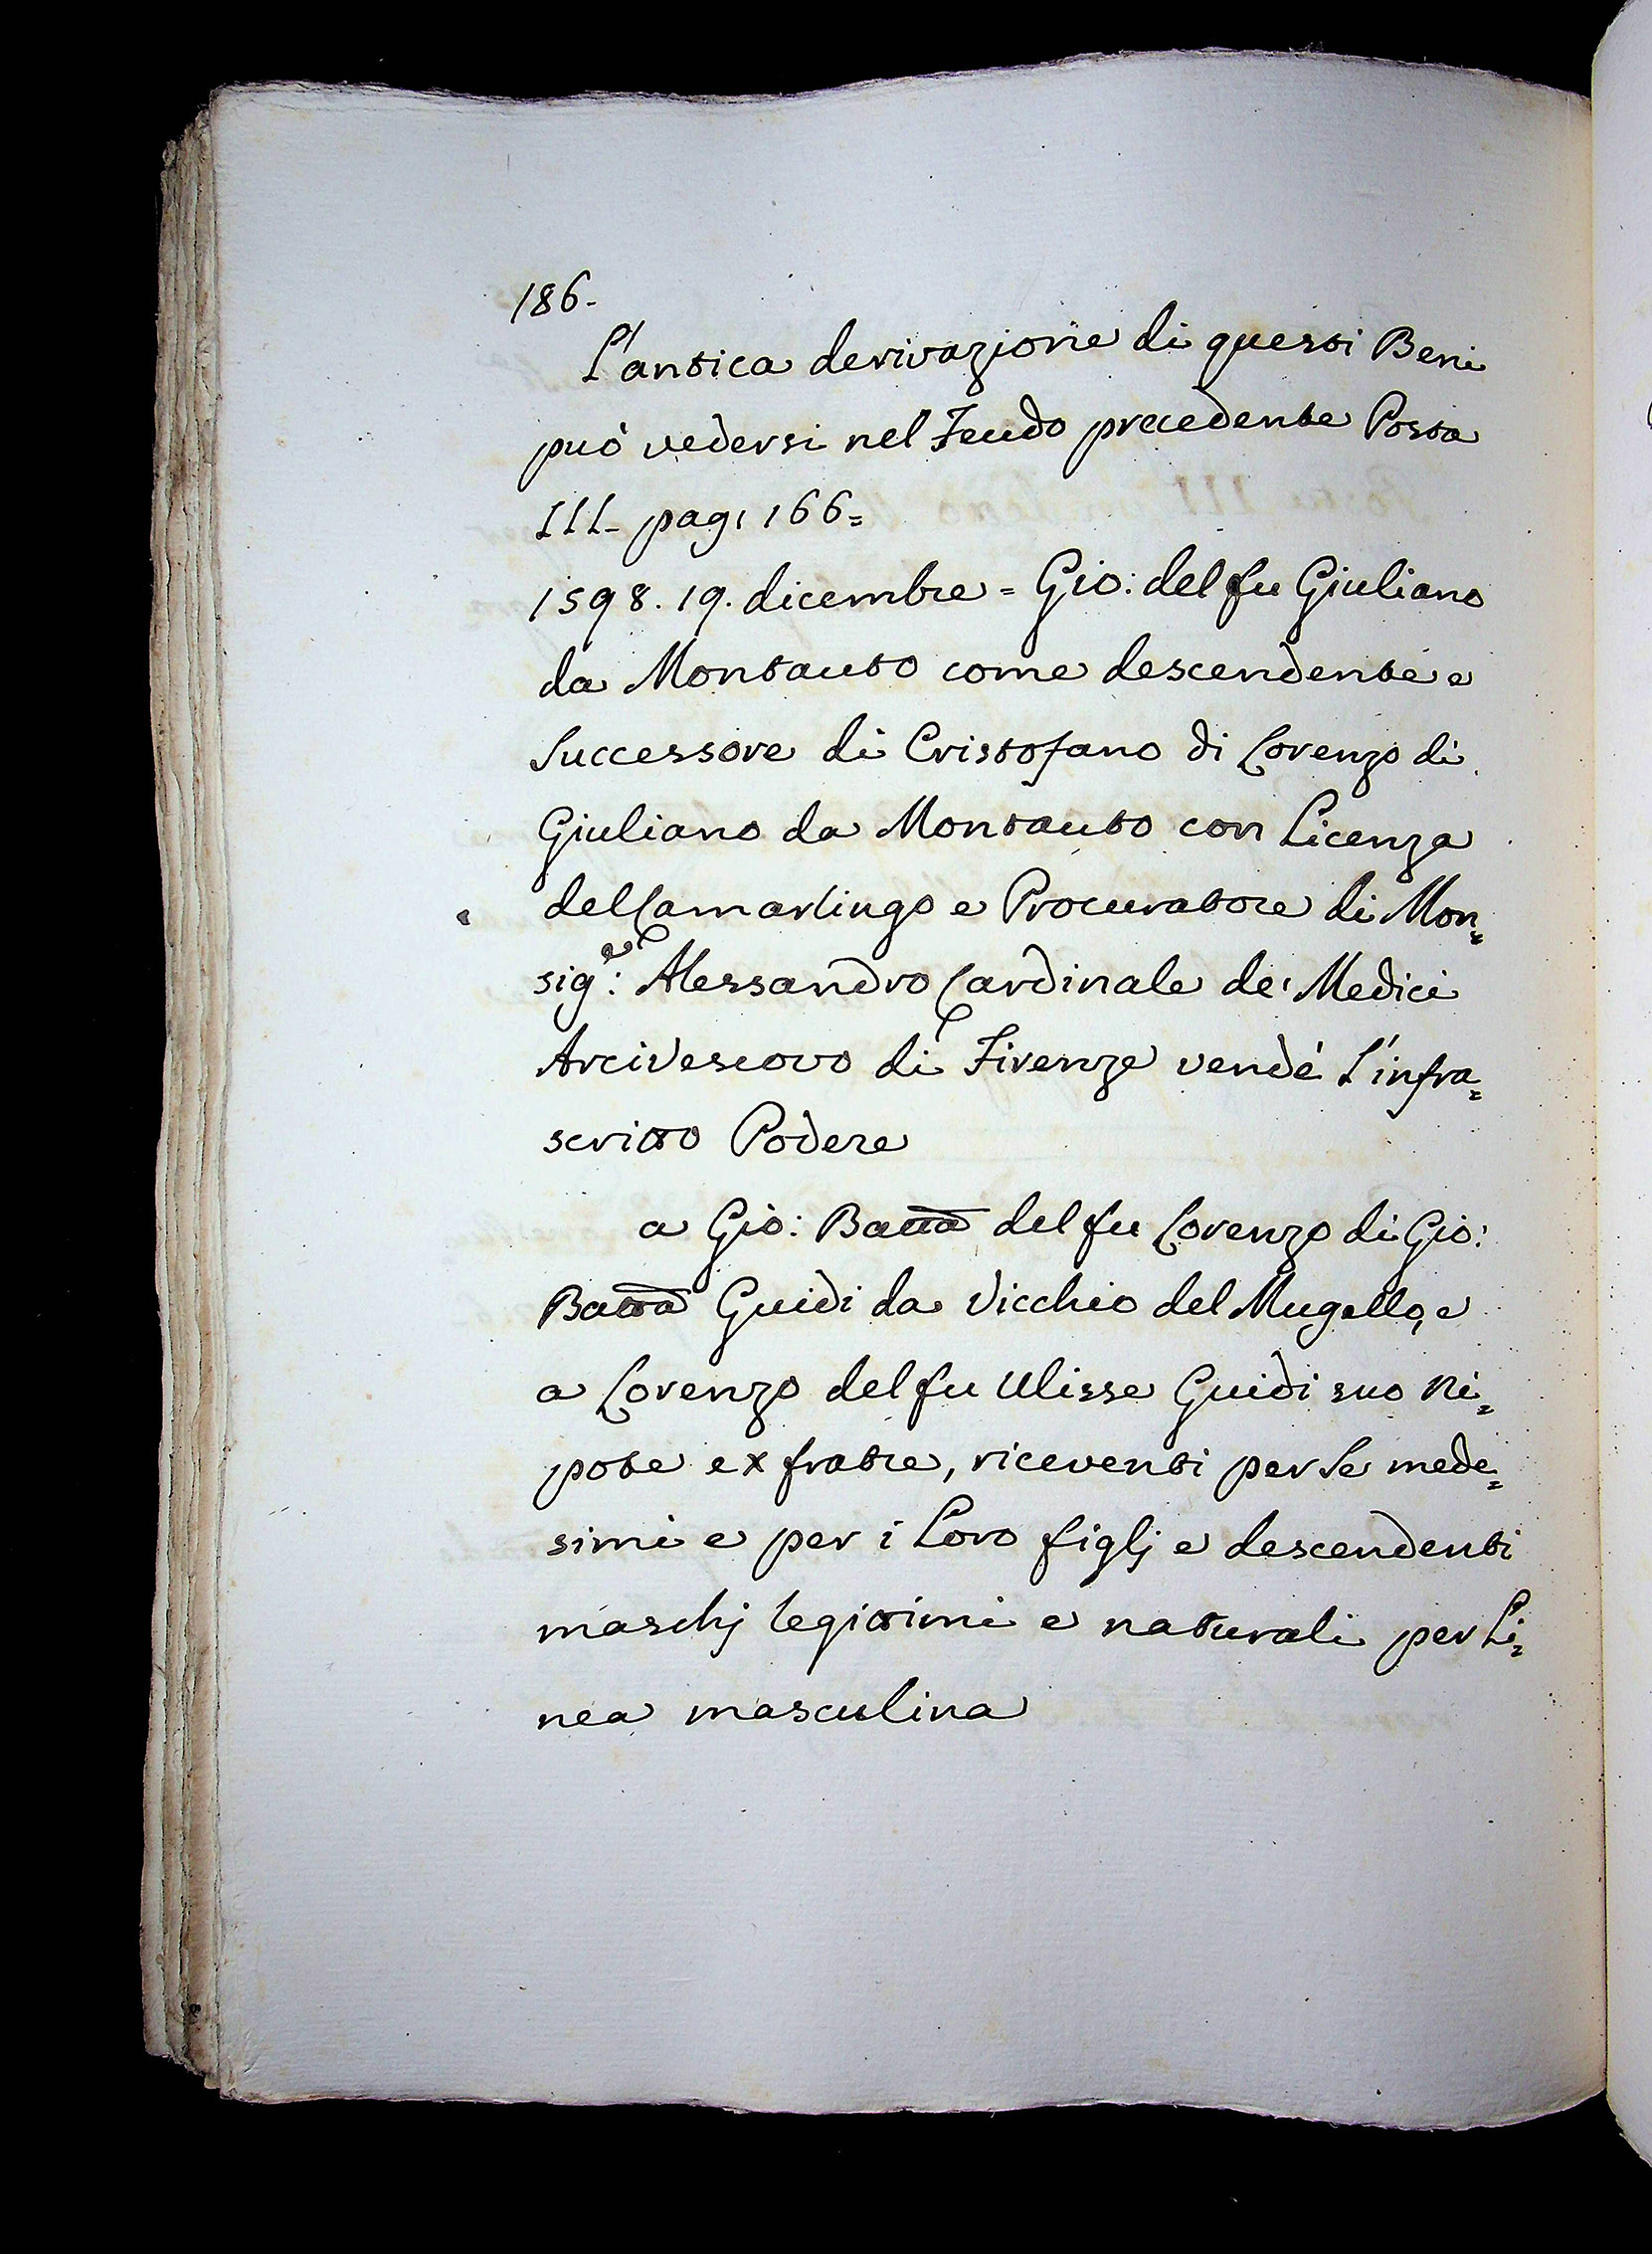 186.
L'antica derivazione di questi Beni
può vedersi nel Feudo precedente Posta
III. pag: 166=
1598. 19. dicembre = Gio: del fu Giuliano
da Montauto come descendente e
Successore di Cristofano di Lorenzo di
Giuliano da Montauto con Licenza
del Camarlingo e Procuratore di Mon=
sig.e: Alessandro Cardinale de' Medici
Arcivescovo di Firenze vendé l'infra=
scritto Podere
a Gio: Batta del fu Lorenzo di Gio:
Batta Guidi da Vicchio del Mugello, e
a Lorenzo del fu Ulisse Guidi suo Ni=
pote ex fratre, riceventi per Se mede=
simi e per i Loro figlj e descendenti
maschj legittimi e naturali per Li=
nea masculina